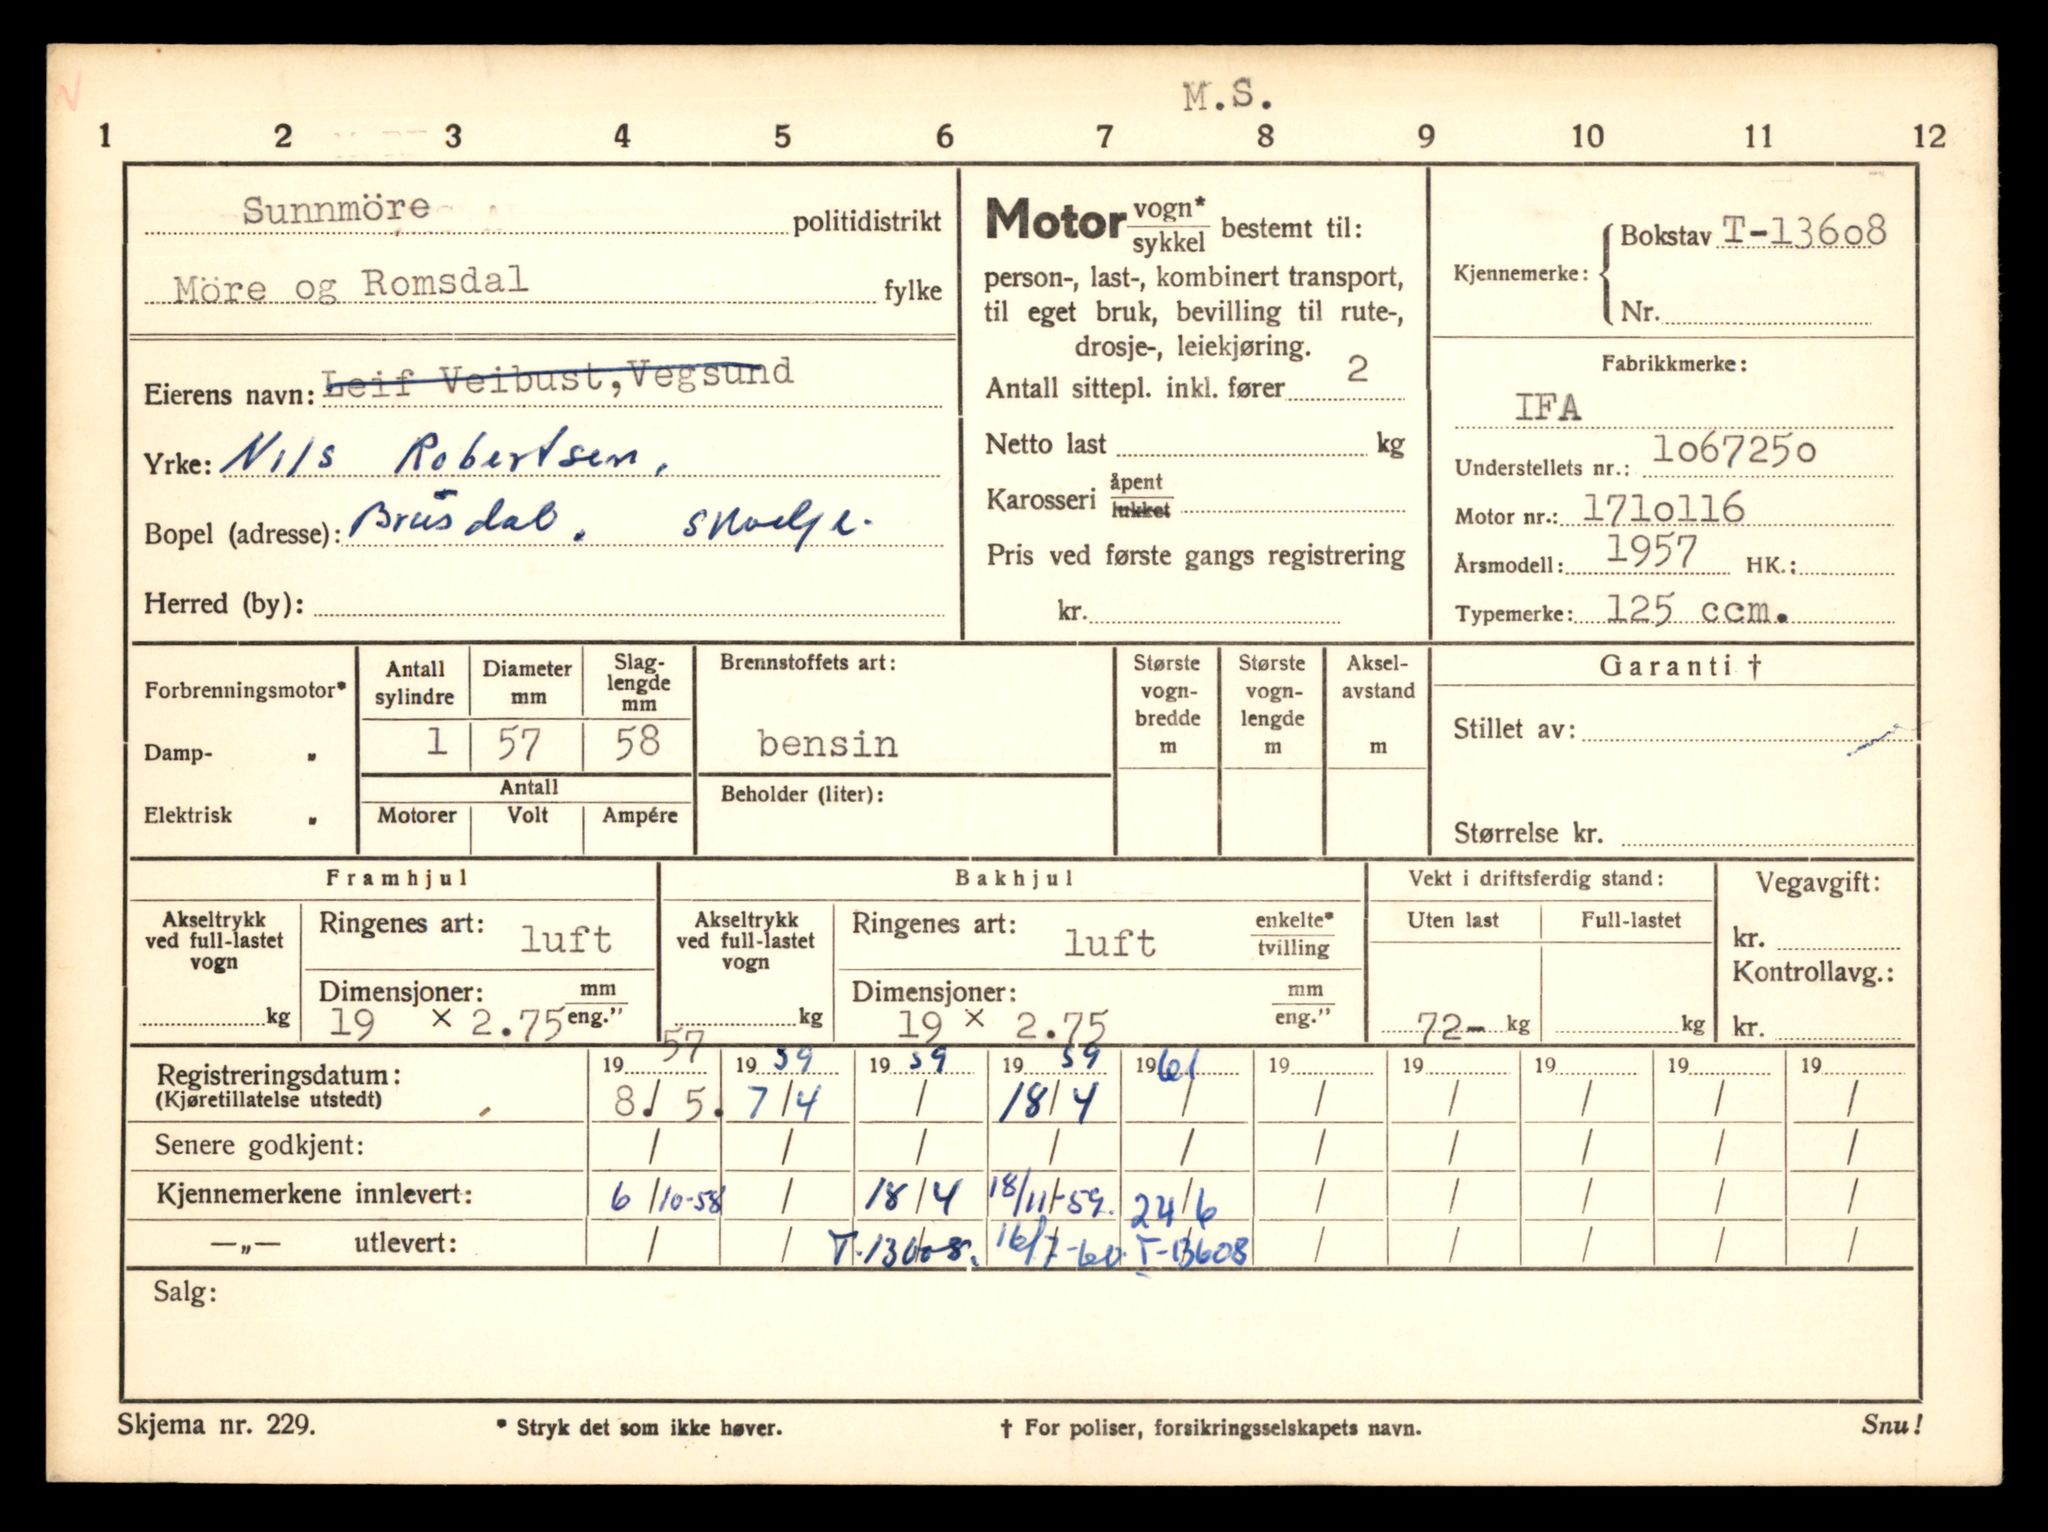 M.S.
1 2 3 4 5 6 7 8 9 10 11 12
Sunnmöre politidistrikt
Möre og Romsdal fylke
Eierens navn: Leif Veibust, Vegsund
Yrke: Nils Robertsen.
Bopel (adresse): Brusdal. Skodje.
Herred (by):
Motor vogn* / sykkel bestemt til:
person-, last-, kombinert transport,
til eget bruk, bevilling til rute-,
drosje-, leiekjøring.
Antall sittepl. inkl. fører 2
Netto last kg
Karosseri åpent / lukket
Pris ved første gangs registrering
kr.
Kjennemerke: Bokstav T-13608
Nr.
Fabrikkmerke:
IFA
Understellets nr.: 1067250
Motor nr.: 1710116
Årsmodell: 1957 HK.:
Typemerke: 125 ccm.
Forbrenningsmotor*
Damp- "
Elektrisk "
Antall sylindre 1
Diameter mm 57
Slag-lengde mm 58
Antall
Motorer Volt Ampére
Brennstoffets art:
bensin
Beholder (liter):
Største vogn-bredde m
Største vogn-lengde m
Aksel-avstand m
Garanti †
Stillet av:
Størrelse kr.
Framhjul
Akseltrykk ved full-lastet vogn
kg
Ringenes art: luft
Dimensjoner: mm / eng."
19 × 2.75
Bakhjul
Akseltrykk ved full-lastet vogn
kg
Ringenes art: luft enkelte* / tvilling
Dimensjoner: mm / eng."
19 × 2.75
Vekt i driftsferdig stand:
Uten last Full-lastet
72- kg kg
Vegavgift:
kr.
Kontrollavg.:
kr.
19 57 19 59 19 59 19 59 19 61 19 19 19 19 19
Registreringsdatum: 8./5. 7/4 / 18/4 / / / / / /
(Kjøretillatelse utstedt)
Senere godkjent: / / / / / / / / / /
Kjennemerkene innlevert: 6/10-58 / 18/4 18/11-59. 24/6 / / / / /
—„— utlevert: / / T-13608. 16/7-60. T-13608 / / / / /
Salg:
Skjema nr. 229. * Stryk det som ikke høver. † For poliser, forsikringsselskapets navn. Snu!